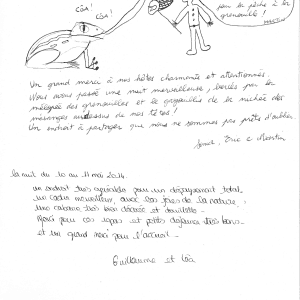 Côa!
Côa!
pour la pêche à la
grenouille!
Un grand merci à nos hôtes charmants et attentionnés.
Nous avons passé une nuit merveilleuse, bercés par la
mélopée des grenouilles et le gazouillis de la nichée des
mésanges au dessus de nos têtes!
Un endroit à partager que nous ne sommes pas prêts d'oublier.
Eric e
la nuit du 10 au 11 mai 2014.
un endroit très agréable pour un dépaysement total
un cadre merveilleux, avec les joies de la nature.
une cabane très bien décorée et douillette.
Merci pour ces repas et petits déjeuners très bons
et un grand merci pour l'accueil.
Guillaume et